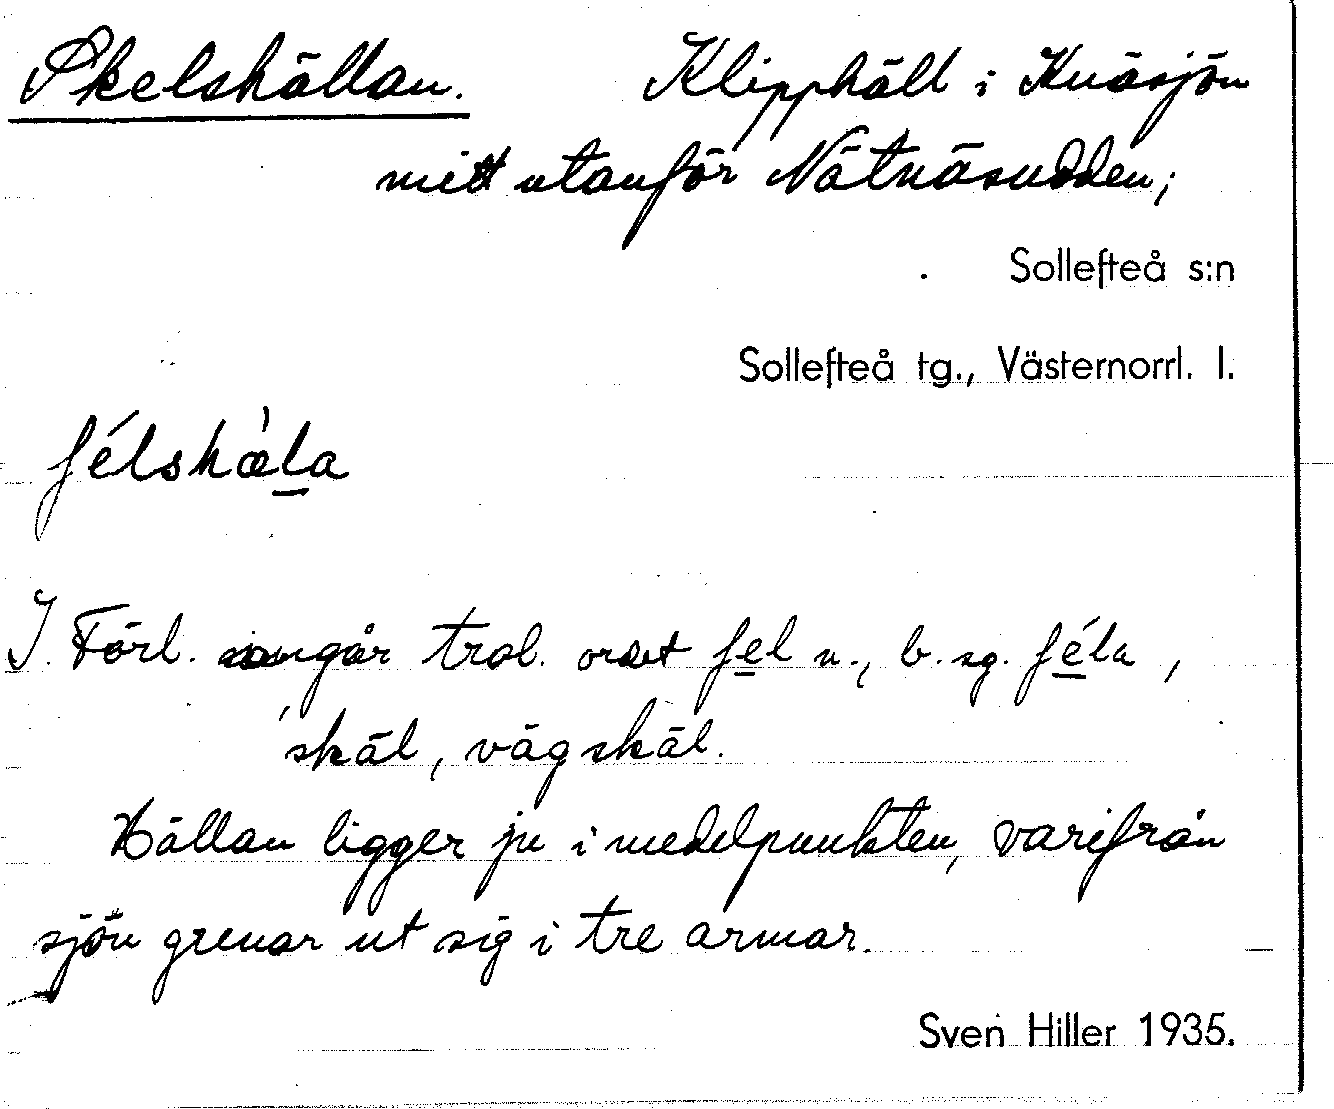 Skelshällan. Klipphäll i Knäsjön
mitt utanför Nätnäsudden;
Sollefteå s:n
Sollefteå tg., Västernorrl. l.
ʃélshæ̀la
I Förl. ingår trol. ordet ʃel n., b. sg. ʃéla,
'skäl, vägskäl.
Hällan ligger ju i medelpunkten, varifrån
sjön grenar ut sig i tre armar.
Sven Hiller 1935.